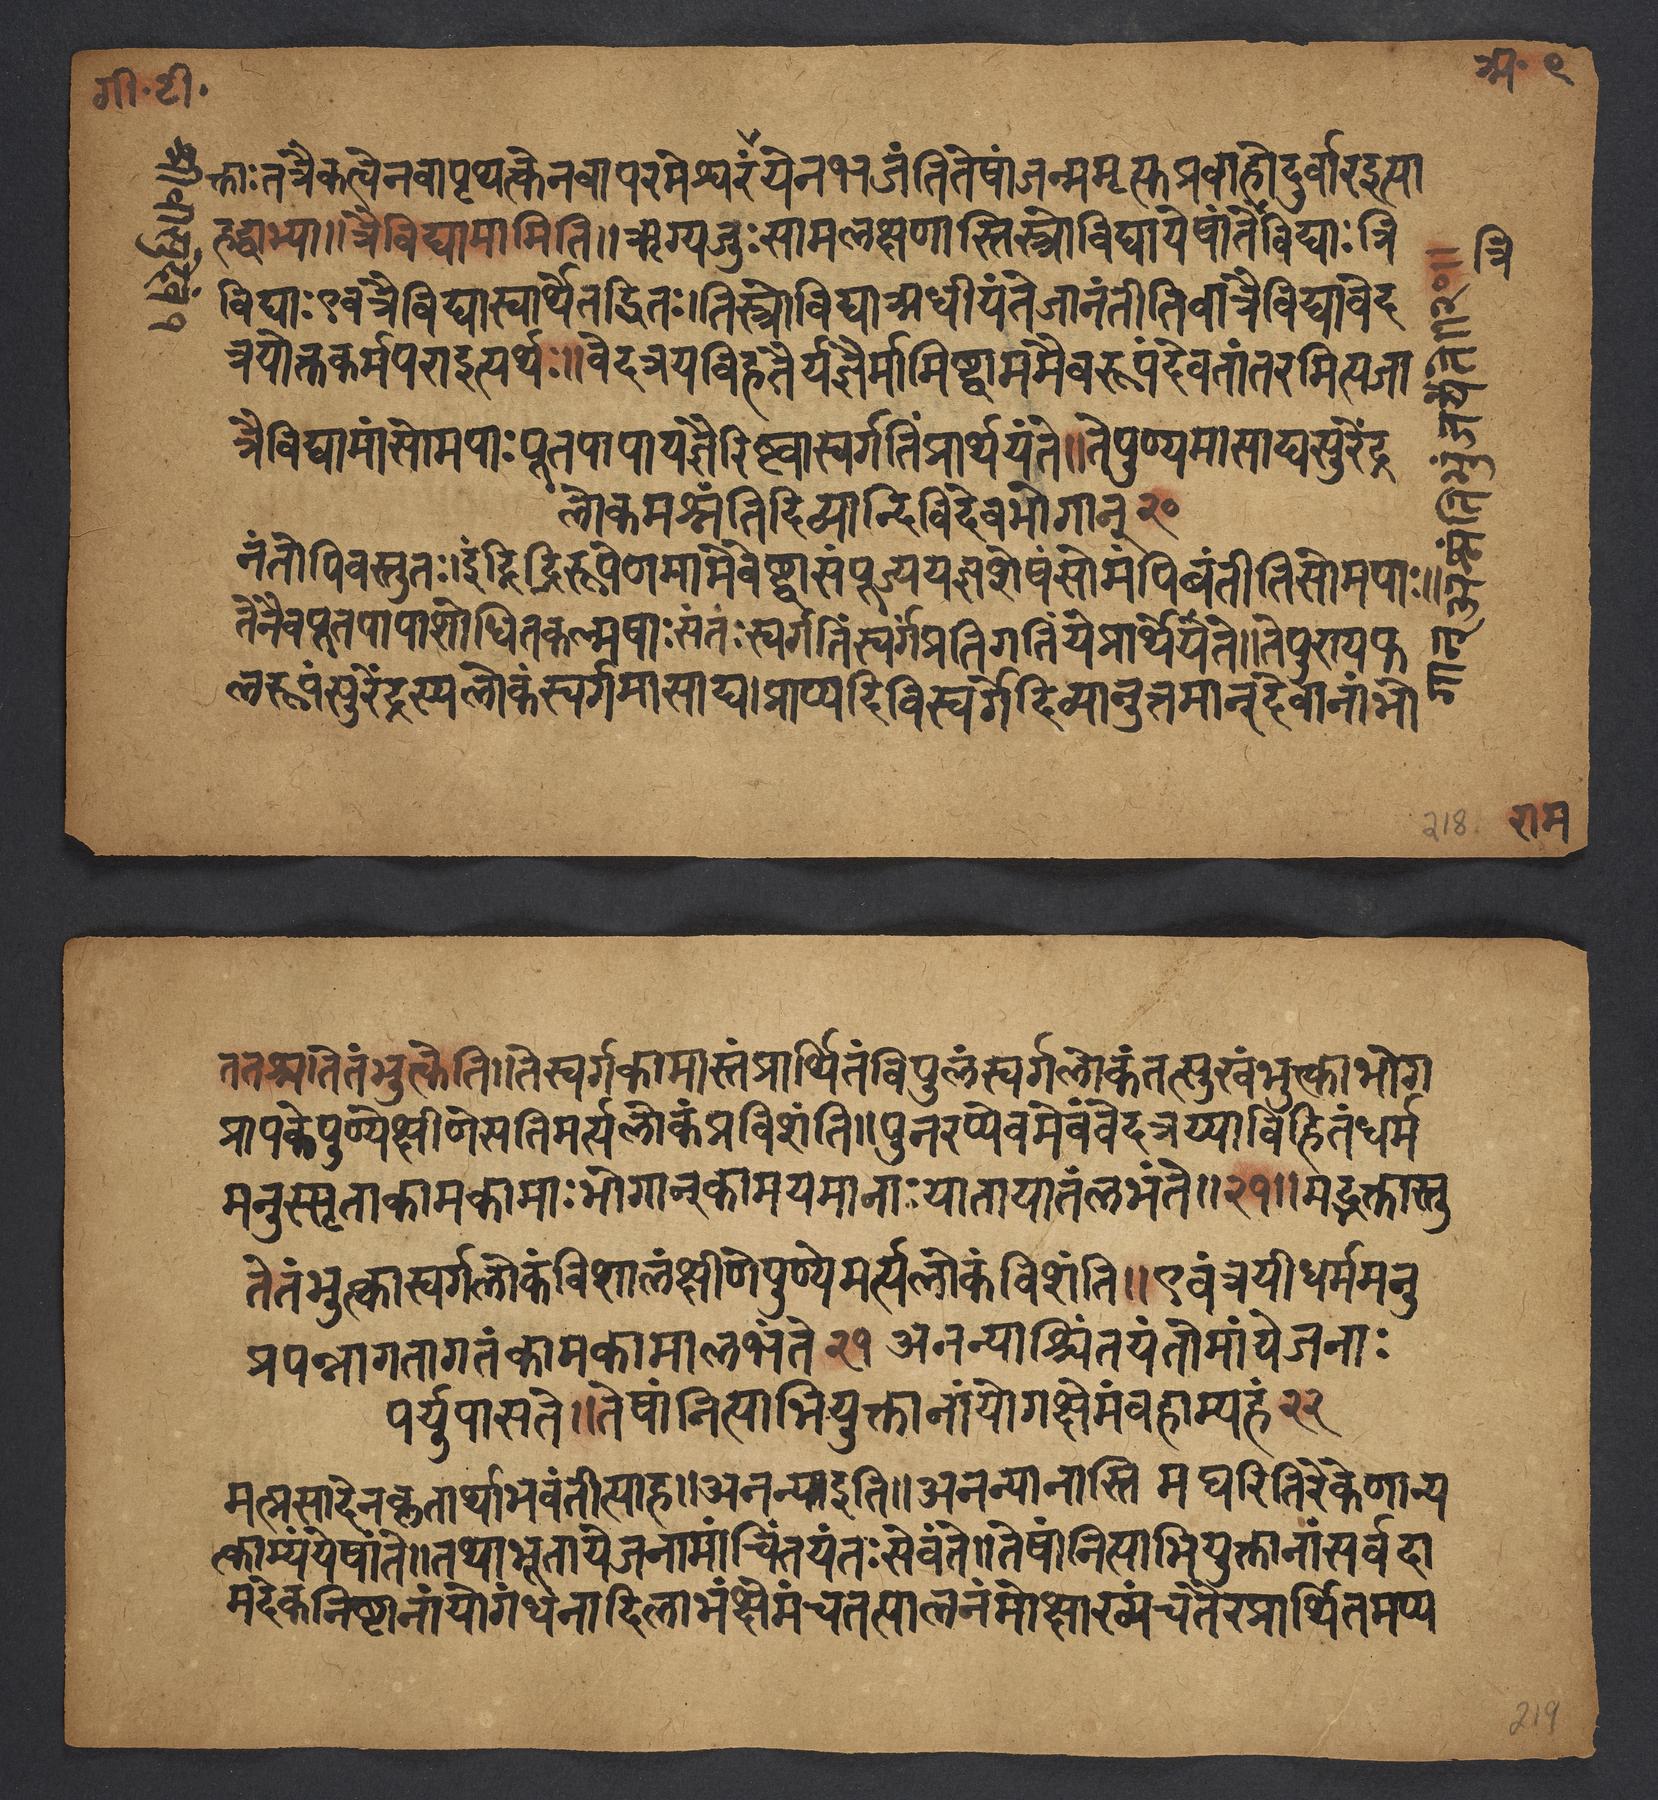 गी·टी·
अ· ९
क्ताःतत्रैकत्वेनवापृथक्त्केनवापरमेश्वरंयेनभजंतितेषांजन्ममृत्युप्रवाहोदुर्वारइत्या
हद्वाभ्यां॥त्रैविद्यामामिति॥ऋग्यजुःसामलक्षणास्तिस्त्रोविद्यायेषांतेत्रैविद्याःत्रि
त्रि
विद्याःएवत्रैविद्यास्वार्थेतद्धितः।तिस्त्रोविद्याअधीयंतेजानंतीतिवात्रैविद्यावेद
त्रयोक्तकर्मपराइत्यर्थः॥वेदत्रयविहितैर्यज्ञैर्मामिष्ट्वाममैवरूपंदेवतांतरमित्यजा
त्रैविद्यामांसोमपाःपूतपापायज्ञैरिष्ट्वास्वर्गतिंप्रार्थयंते॥तेपुण्यमासाद्यसुरेंद्र
लोकमश्नंतिदिव्यान्दिविदेवभोगान् २०
नंतोपिवस्तुतः।इंद्रिद्रिरूपेणमामेवेष्ट्वासंपूज्ययज्ञशेषंसोमंपिबंतीतिसोमपाः॥
तेनैवपूतपापाशोधितकल्मषाःसंतःस्वर्गतिंस्वर्गंप्रतिगतिंयेप्रार्थयंते॥तेपुण्यफ
लरूपंसुरेंद्रस्यलोकंस्वर्गमासाद्य।प्राप्यदिविस्वर्गेदिव्यानुत्तमान्देवानांभो
218
राम
ततश्चतेतंभुक्त्केति॥तेस्वर्गकामास्तंप्रार्थितंविपुलंस्वर्गलोकंतत्सुखंभुक्त्काभोग
प्रापकेपुण्येक्षीणेसतिमर्त्यलोकंप्रविशंति॥पुनरप्येवमेवंवेदत्रय्याविहितंधर्म
मनुस्सृताकामकामाःभोगान्कामयमानाःयातायातंलभंते॥२१॥मद्भक्तास्तु
तेतंभुक्त्कास्वर्गलोकंविशालंक्षीणेपुण्येमर्त्यलोकंविशंति॥एवंत्रयीधर्ममनु
प्रपन्नागतागतंकामकामालभंते २१ अनन्याश्चिंतयंतोमांयेजनाः
पर्युपासते॥तेषांनित्याभियुक्तानांयोगक्षेमंवहाम्यहं २२
मत्प्रसादेनकृतार्थाभवंतीत्याह॥अनन्याइति॥अनन्यानास्ति मद्यरितिरेकेणान्य
त्काम्यंयेषांते॥तथाभूतायेजनामांचिंतयंतःसेवंते॥तेषांनित्याभियुक्तानांसर्वदा
मदेकनिष्टानांयोगंधनादिलाभंक्षेमंचतत्पालनंमोक्षाख्यंचतैरप्रार्थितमप्य
219